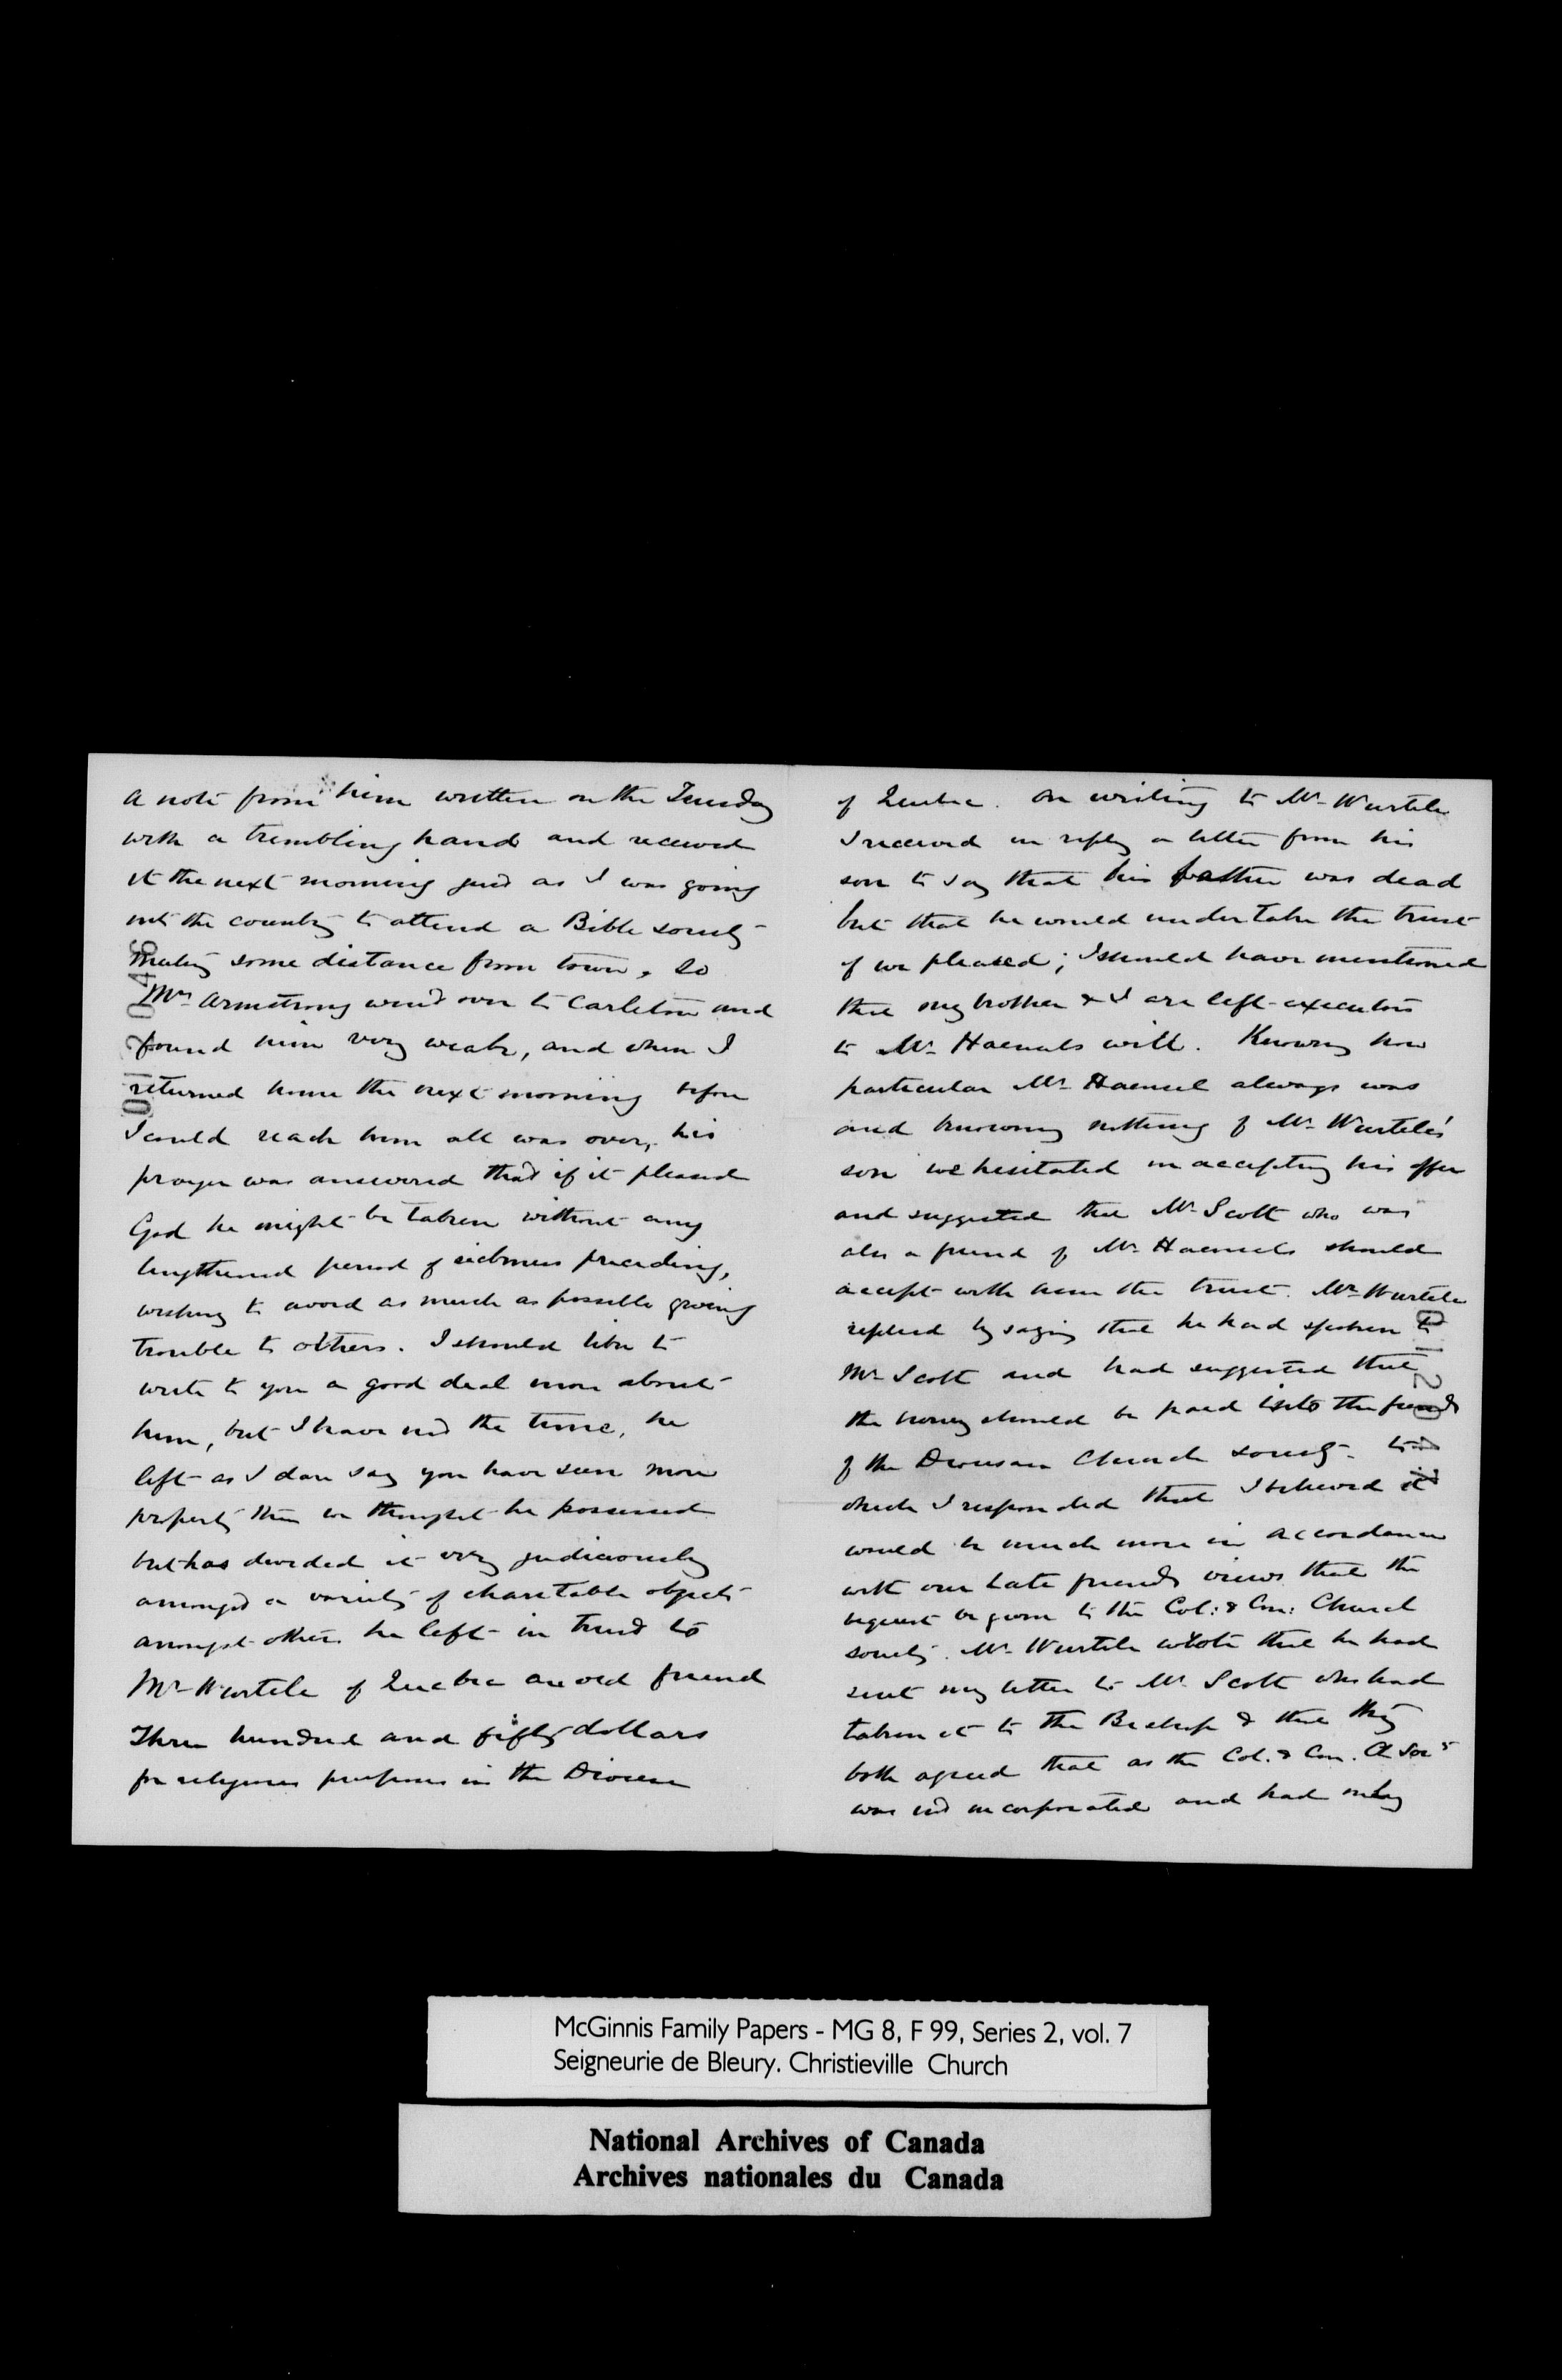 a note from him written on the Tuesday
with a trembling hand and received
it the next morning just as I was going
into the country to attend a Bible society
meeting some distance from town, so
Mrs Armstrong went over to Carleton and
found him very weak, and when I
returned home the next morning before
I could reach him all was over, his
prayer was answered that if it pleased
God he might be taken without any
lengthened period of sickness preceding,
wishing to avoid as much as possible giving
trouble to others. I should like to
write to you a good deal more about
him, but I have not the time, he
left as I dare say you have seen more
property than we thought he possessed
but has divided it very judiciously
amongst a variety of charitable objects
amongst others he left in trust to
Mr Wurtele of Quebec an old friend
Three hundred and fifty dollars
for religious purposes in the Diocese
012046
of Quebec. On writing to Mr Wurtele
I received in reply a letter from his
son to say that his father was dead
but that he would undertake the trust
if we pleased; I should have mentioned
that my brother & I are left executors
to Mr Haensels will. Knowing how
particular Mr Haensel always was
and knowing nothing of Mr Wurtele's
son we hesitated in accepting his offer
and suggested that Mr Scott who was
also a friend of Mr Haensels should
accept with him the trust. Mr Wurtele
replied by saying that he had spoken to
Mr Scott and had suggested that
the money should be paid into the funds
of the Diocesan Church Society - to
which I responded that I believed it
would be much more in accordance
with our late friends views that the
bequest be given to the Col: & Con: Church
society. Mr Wurtele wrote that he had
sent my letter to Mr Scott who had
taken it to the Bishop & that they
both agreed that as the Col. & Con. Ch Socy
was not incorporated and had only
McGinnis Family Papers - MG 8, F 99, Series 2, vol. 7
Seigneurie de Bleury. Christieville Church
National Archives of Canada
Archives nationales du Canada